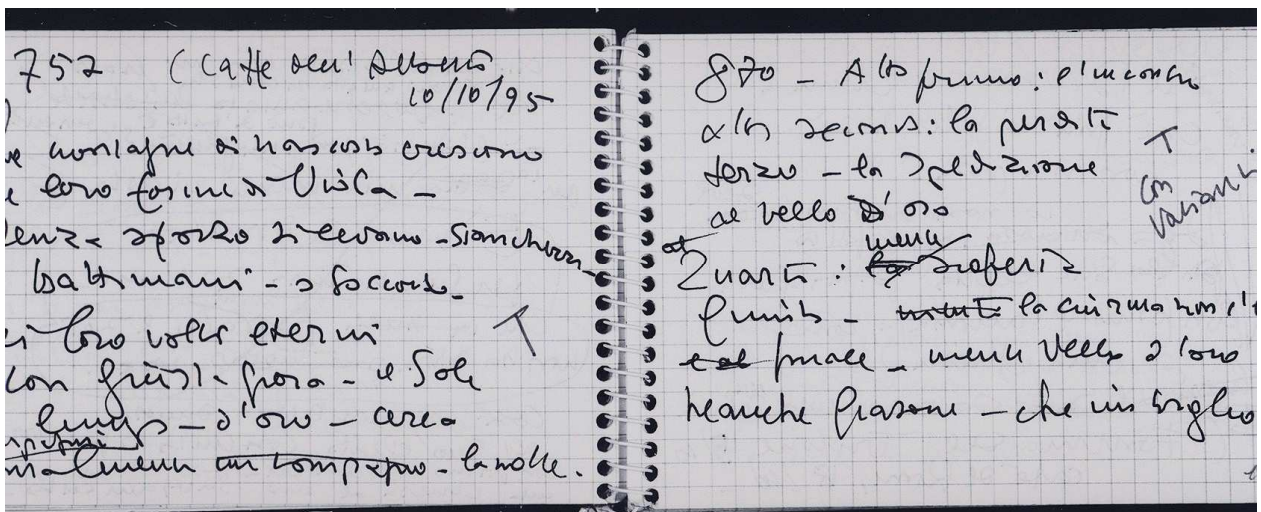 757 (Caffè dell'
10/10/95
e montagne di nascosto crescono
e loro forme di Viola –
enza sforzo si levano – Stanchezza –
battimani – o soccorso –
i loro volti eterni
con giusta gioia – il Sole
lungo – d'oro – cerca
un compagno – la notte.
T
870 – Atto primo: l'incontro
atto secondo: la perdita
terzo – la spedizione
al vello d'oro
T
con
varianti
niente
Quarto: la scoperta
Quinto – la ciurma non c'è
e al finale – niente Vello d'oro
neanche Giasone – che imbroglio